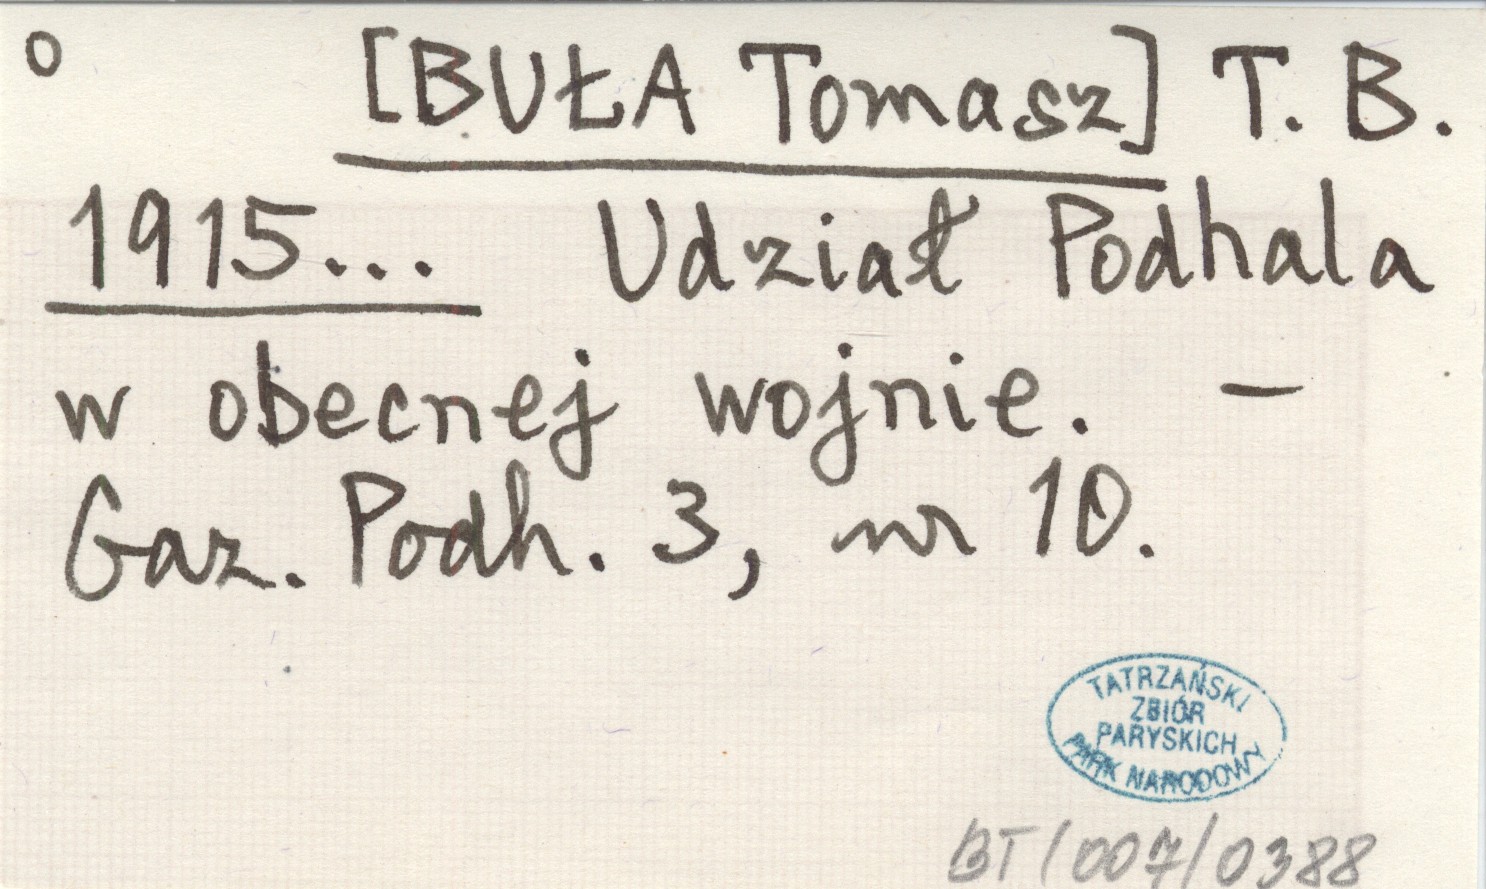 o [BUŁA Tomasz] T. B.
1915... Udział Podhala
w obecnej wojnie. —
Gaz. Podh. 3, nr 10.
TATRZAŃSKI
ZBIÓR
PARYSKICH
PARK NARODOWY
BT/007/0388